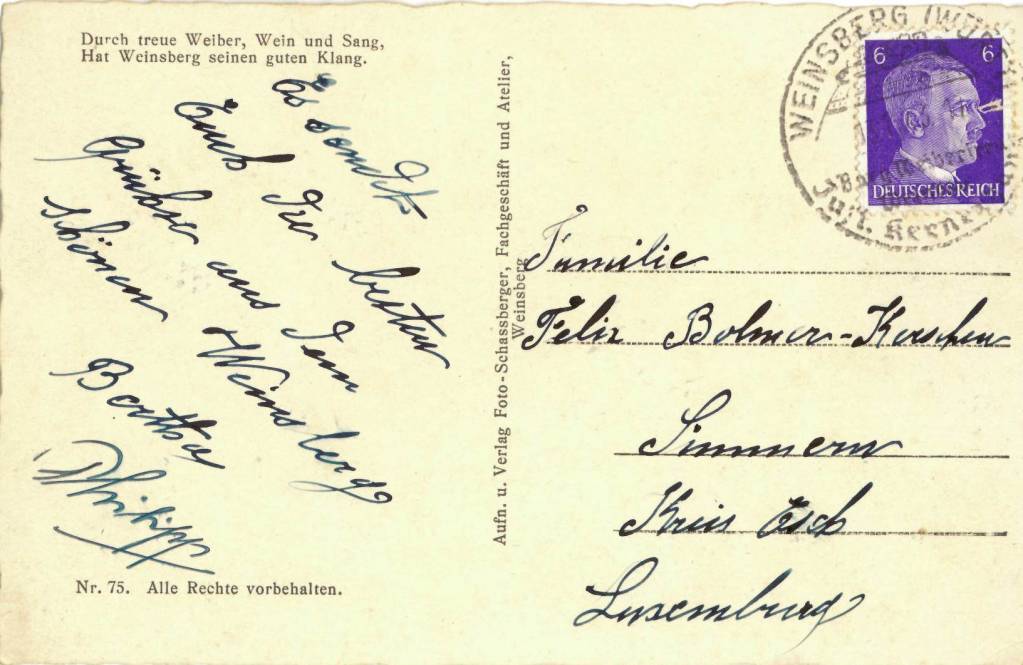 Durch treue Weiber, Wein und Sang,
Hat Weinsberg seinen guten Klang.
Es sendet
Euch die besten
Grüße aus dem
schönen Weinsberg
Bertha
Philipp
Nr. 75. Alle Rechte vorbehalten.
Aufn. u. Verlag Foto-Schassberger, Fachgeschäft und Atelier,
Weinsberg
WEINSBERG
Just. Kerner
6 6
DEUTSCHES REICH
Familie
Felix Bolmer-Kerschen
Simmern
Kreis Esch
Luxemburg